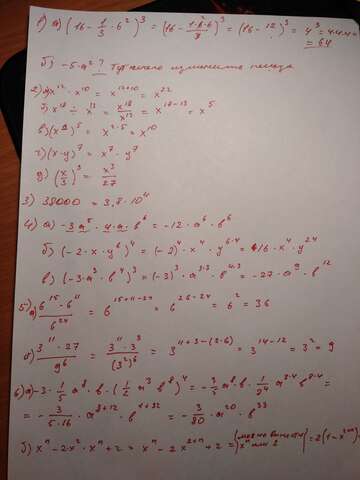 1) a) (16 - 1/3 · 6²)³ = (16 - 1·6·6/3)³ = (16 - 12)³ = 4³ = 4·4·4 = 64
б) -5·a²?
2) a) x¹² · x¹⁰ = x¹²⁺¹⁰ = x²²
б) x¹⁸ ÷ x¹³ = x¹⁸/x¹³ = x¹⁸⁻¹³ = x⁵
в) (x²)⁵ = x²·⁵ = x¹⁰
г) (x·y)⁷ = x⁷ · y⁷
д) (x/3)³ = x³/27
3) 38000 = 3,8 · 10⁴
4) a) -3a⁵ · 4·a · b⁶ = -12 · a⁶ · b⁶
б) (-2 · x · y⁶)⁴ = (-2)⁴ · x⁴ · y⁶·⁴ = 16 · x⁴ · y²⁴
в) (-3 · a³ · b⁴)³ = (-3)³ · a³·³ · b⁴·³ = -27 · a⁹ · b¹²
5) a) 6¹⁵ · 6¹¹/6²⁴ = 6¹⁵⁺¹¹⁻²⁴ = 6²⁶⁻²⁴ = 6² = 36
б) 3¹¹ · 27/9⁶ = 3¹¹ · 3³/(3²)⁶ = 3¹¹⁺³⁻⁽²·⁶⁾ = 3¹⁴⁻¹² = 3² = 9
6) a) -3 · 1/5 a⁸ · b · (1/2 a³ b⁸)⁴ = -3/5 a⁸ · b · 1/2⁴ a³·⁴ · b⁸·⁴ =
= - 3/5·16 · a⁸⁺¹² · b¹⁺³² = - 3/80 · a²⁰ · b³³
б) xⁿ - 2·x² · xⁿ + 2 = xⁿ - 2 x²⁺ⁿ + 2 = можно вынести xⁿ или 2 = 2(1 - x²⁺ⁿ)